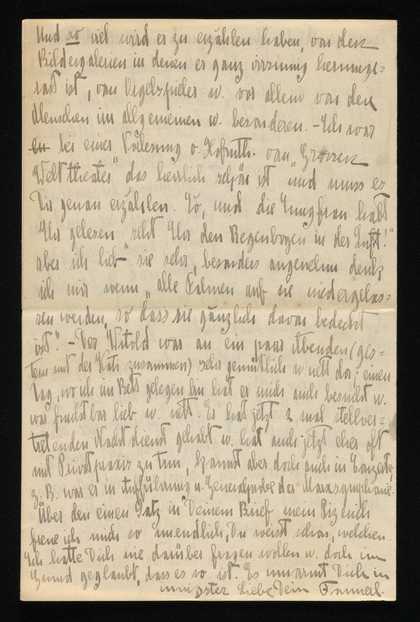 Und so viel wird er zu erzählen haben, von den
Bildergalerien in denen er ganz herumge-
ist, vom u. vor allem von den
Menschen im allgemeinen u. besonderen. – Ich war
bei einer Vorlesung v. Hofmth. von „Grossen
Welttheater" das herrlich schön ist und muss es
Dir genau erzählen. Jö, und die Jungfrau habt
Ihr gelesen „seht Ihr den Regenbogen in der Luft!"
aber ich lieb sie sehr, besonders angenehm denk
ich mir wenn „alle Fahnen auf sie niedergelas-
sen werden, so dass sie gänzlich davon bedeckt
ist". – Der Witold war an ein paar Abenden (ges-
tern mit der zusammen) sehr gemütlich u. nett da; einen
Tag, wo ich im Bett gelegen bin hat er mich auch besucht u.
war furchtbar lieb u. nett. Er hat jetzt 2 mal stellver-
tretenden Nachtdienst gehabt u. hat auch jetzt eher oft
mit Privatpraxis zu tun, kommt aber doch auch in Konzerte
z. B. war er in Aufführung u. Generalprobe der
Über den einen Satz in Deinem Brief mein
freue ich mich so unendlich, Du weisst schon, welchen.
Ich hätte Dich nie darüber fragen wollen u. doch im
Grund geglaubt, dass es so ist. Es umarmt Dich in
Liebe Dein